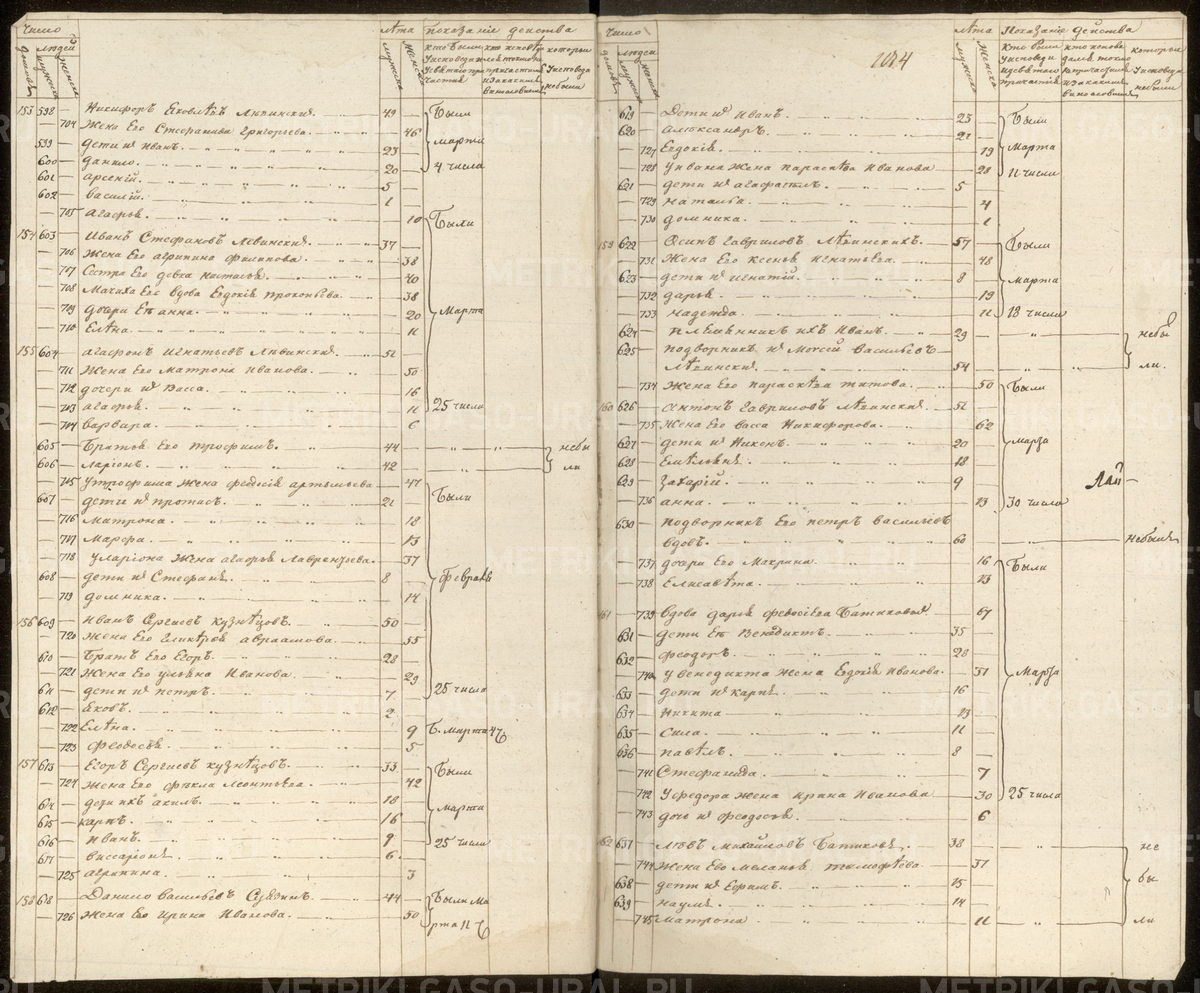 Число
Лѣта
Показанїе действа
домовъ
людей
мужеска
женска
мужеска
женска
кто были
у исповеди
и святаго при
частїя
которыи
у исповеди
небыли
153 598 — Никифоръ Яковлевъ Лѣвинских. 49 — Были
— 704 Жена Его Стефанида Григорьева. — 46
599 — дети их Иванъ. 23 — марта
600 — данило. 20 — 4 числа
601 — арсений. 5 —
602 — василий. 1 —
— 705 агафья. — 10 Были
154 603 — Иванъ Стефановъ Левинских. 37 —
— 706 Жена Его агрипина Филипова. — 38
— 707 Сестра Его девка наталья. — 40
— 708 Мачиха Его вдова Евдокия прокопьева. — 38
— 709 дочери Ея анна. — 20 Марта
— 710 Елена. — 11
155 604 — агафонъ Игнатьевъ Лѣвинских. 51 —
— 711 Жена Его Матрона Иванова. — 50
— 712 дочери их Васса. — 16
— 713 агафья. — 11 25 числа
— 714 варвара. — 6
605 — Братья Его трофимъ. 44 — небы
606 — ларионъ. 42 — ли
— 715 у трофима жена федосия артемьева — 47
607 — дети их протасъ. 21 — Были
— 716 Матрона. — 18
— 717 Марфа. — 13
— 718 у лариона Жена агафья Лаврентьева. — 37
608 — дети их Стефанъ. 8 — февраля
— 719 домника. — 14
156 609 — Иванъ Сергиевъ кузнѣцовъ. 50 —
— 720 Жена Его Гликерья авраамова. — 55
610 — Братъ Его Егоръ. 28 —
— 721 Жена Его ульяна Иванова. — 29
611 — дети их петръ. 7 — 25 числа
612 — Яковъ. 2 —
— 722 Елена. — 9 Б. Марта
— 723 феодосья. — 5
157 613 — Егоръ Сергиевъ кузнѣцовъ. 33 — Были
— 724 Жена Его фекла Леонтьева. — 42
614 — дети ихъ акилъ. 18 — марта
615 — карпъ. 16 —
616 — Иванъ. 9 — 25 числа
617 — виссарионъ. 6 —
— 725 агрипина. — 3
158 618 — Данило васильевъ 44 — Были Ма
— 726 Жена Его Ирина Иванова. — 50 рта 11
Число
Лѣта
Показание действа
домовъ
людей
мужеска
женска
мужеска
женска
кто были
у исповеди
и святаго
причастия
которыи
у исповеди
небыли
619 — Дети их Иванъ. 23 — Были
620 — александръ. 21 —
— 727 Евдокия. — 19 Марта
— 728 у ивана жена параскева Иванова — 28 11 числа
621 — дети их 5 —
— 729 наталья. — 4
— 730 домника. — 1
159 622 — Осипъ Гавриловъ Лѣвинскихъ. 57 — Были
— 731 Жена Его ксенья игнатьева. — 48
623 — дети их игнатий. 8 — марта
— 732 дарья. — 19
— 733 надежда. — 11 18 числа
624 — племянникъ ихъ Иванъ. 29 — небы
625 — подворникъ их Моисей васильевъ
Лѣвинских. 54 — ли.
— 734 Жена Его параскева титова. — 50 Были
160 626 — антонъ Гавриловъ Лѣвинских. 51 —
— 735 Жена Его васса Никифорова. — 62
627 — дети их Никонъ. 20 — марта
628 — Емельянъ. 18 —
629 — Захарий. 9 —
— 736 анна. — 13 30 числа
630 — подворникъ Его петръ васильевъ
вдовъ. 60 — небылъ
— 737 дочери Его Макрина. — 16 Были
— 738 Елисавета. — 13
161 — 739 вдова дарья федосеева Батиковых. — 67
631 — дети Ея Венедиктъ. 35 —
632 — феодоръ. 28 —
— 740 у венедикта жена Евдокия Иванова. — 37 Марта
633 — дети их карпъ. 16 —
634 — никита — 13 —
635 — сила. 11 —
636 — павелъ. 8 —
— 741 Стефанида. — 7
— 742 у федора жена ирина Иванова — 30 25 числа
— 743 дочь их феодосья. — 6
162 637 — левъ михайловъ Батиковъ. 38 — не
— 744 жена Его маланья тимофеева. — 37
638 — дети их Ефимъ. 15 — бы
639 — наумъ. 14 —
— 745 матрона — 11 ли
METRIKI.GASO-URAL.RU